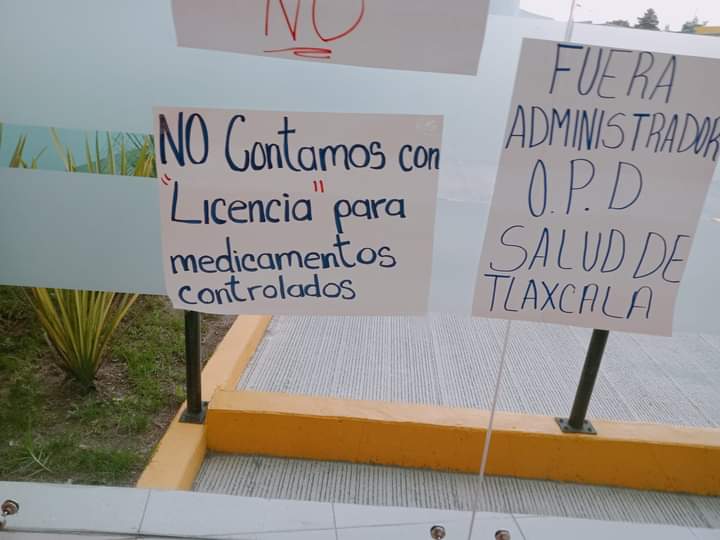 NO
NO Contamos con
"Licencia" para
medicamentos
controlados
FUERA
ADMINISTRADOR
O.P.D
SALUD DE
TLAXCALA